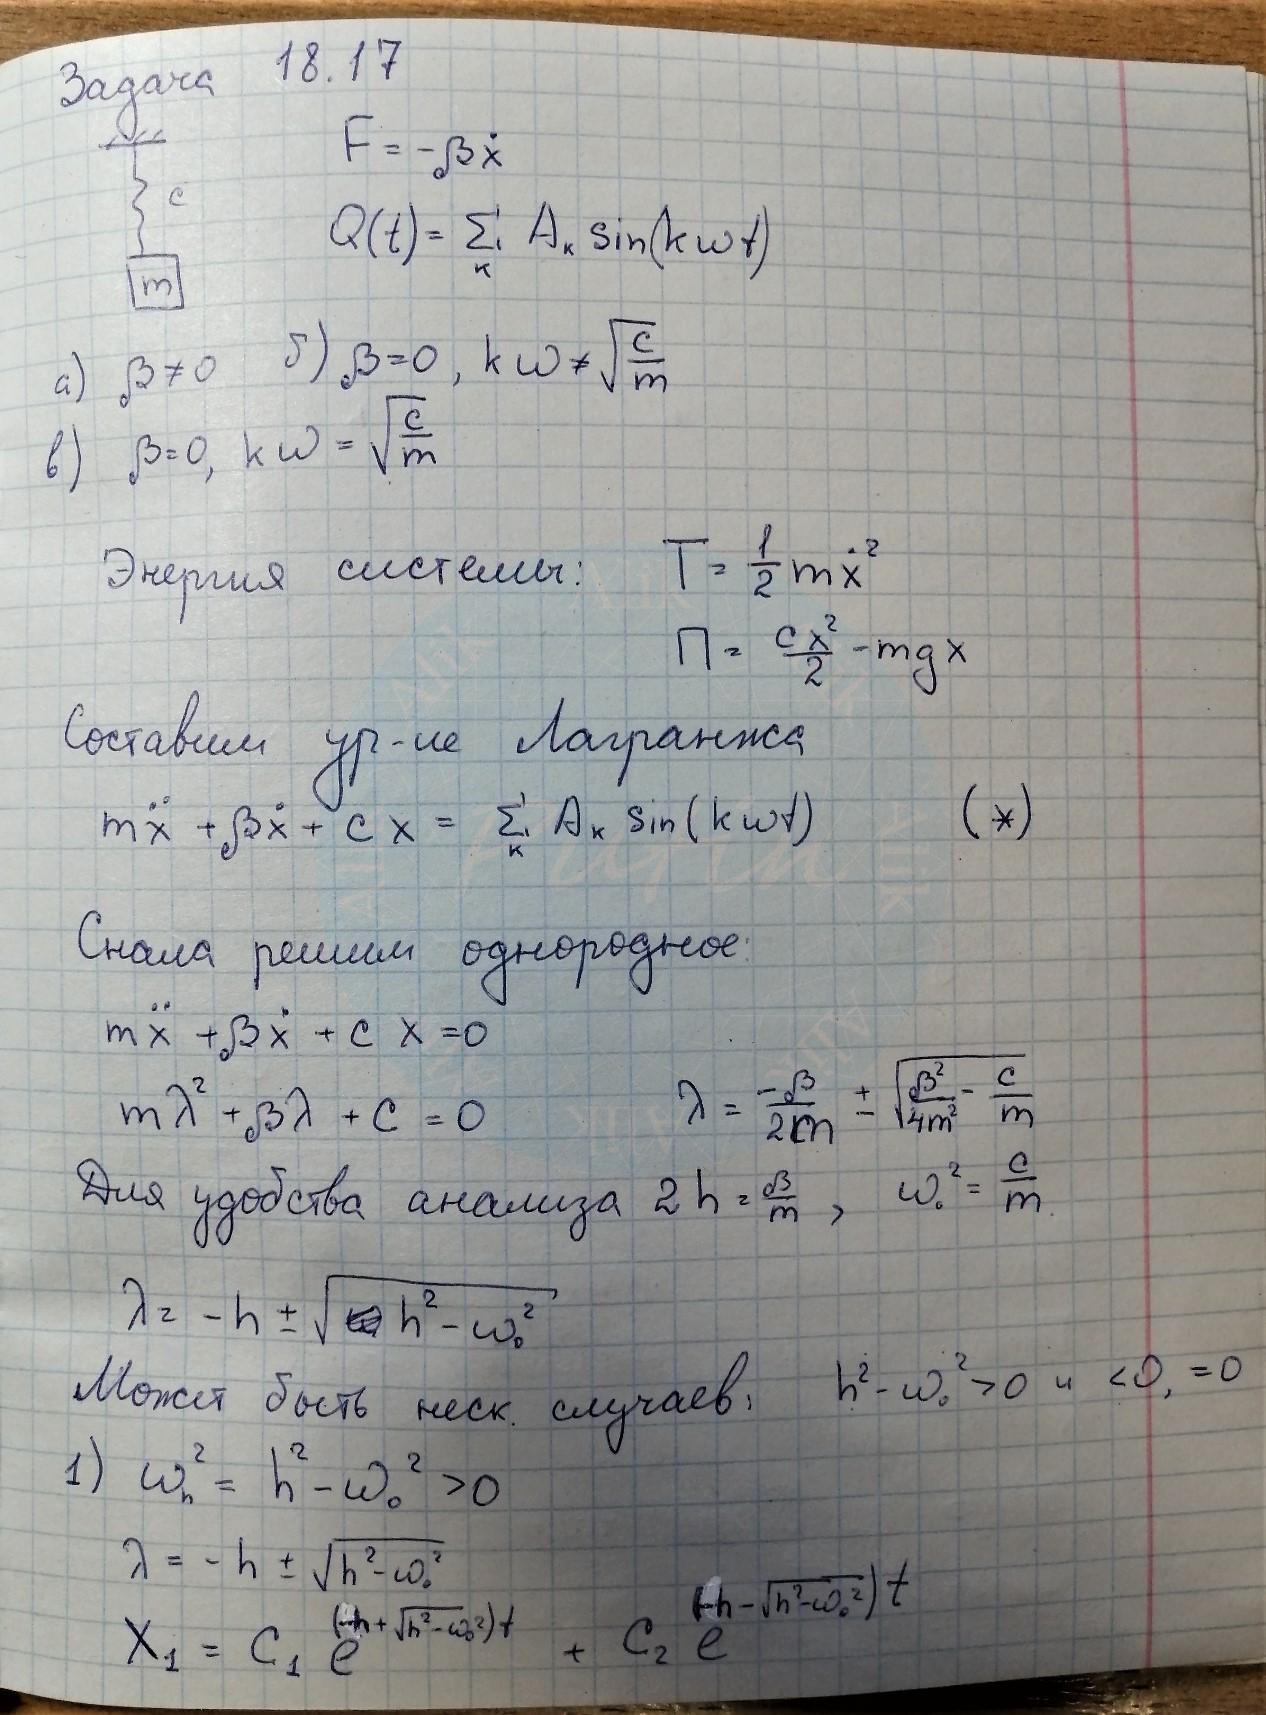 Задача 18.17
F = -βẋ
c
Q(t) = Σ_k A_k sin(kωt)
m
а) β≠0 б) β=0, kω ≠ √(c/m)
в) β=0, kω = √(c/m)
Энергия системы: T = 1/2 mẋ²
П = cx²/2 - mgx
Составим ур-ие Лагранжа
mẍ + βẋ + cx = Σ_k A_k sin(kωt) (*)
Снала решим однородное:
mẍ + βẋ + cx = 0
mλ² + βλ + c = 0 λ = -β/2m ± √(β²/4m² - c/m)
Для удобства анализа 2h = β/m, ω₀² = c/m
λ = -h ± √(h² - ω₀²)
Может быть неск. случаев: h² - ω₀² > 0 и < 0, = 0
1) ω_h² = h² - ω₀² > 0
λ = -h ± √(h² - ω₀²)
X₁ = C₁ e^(-h + √(h² - ω₀²))t + C₂ e^(-h - √(h² - ω₀²))t